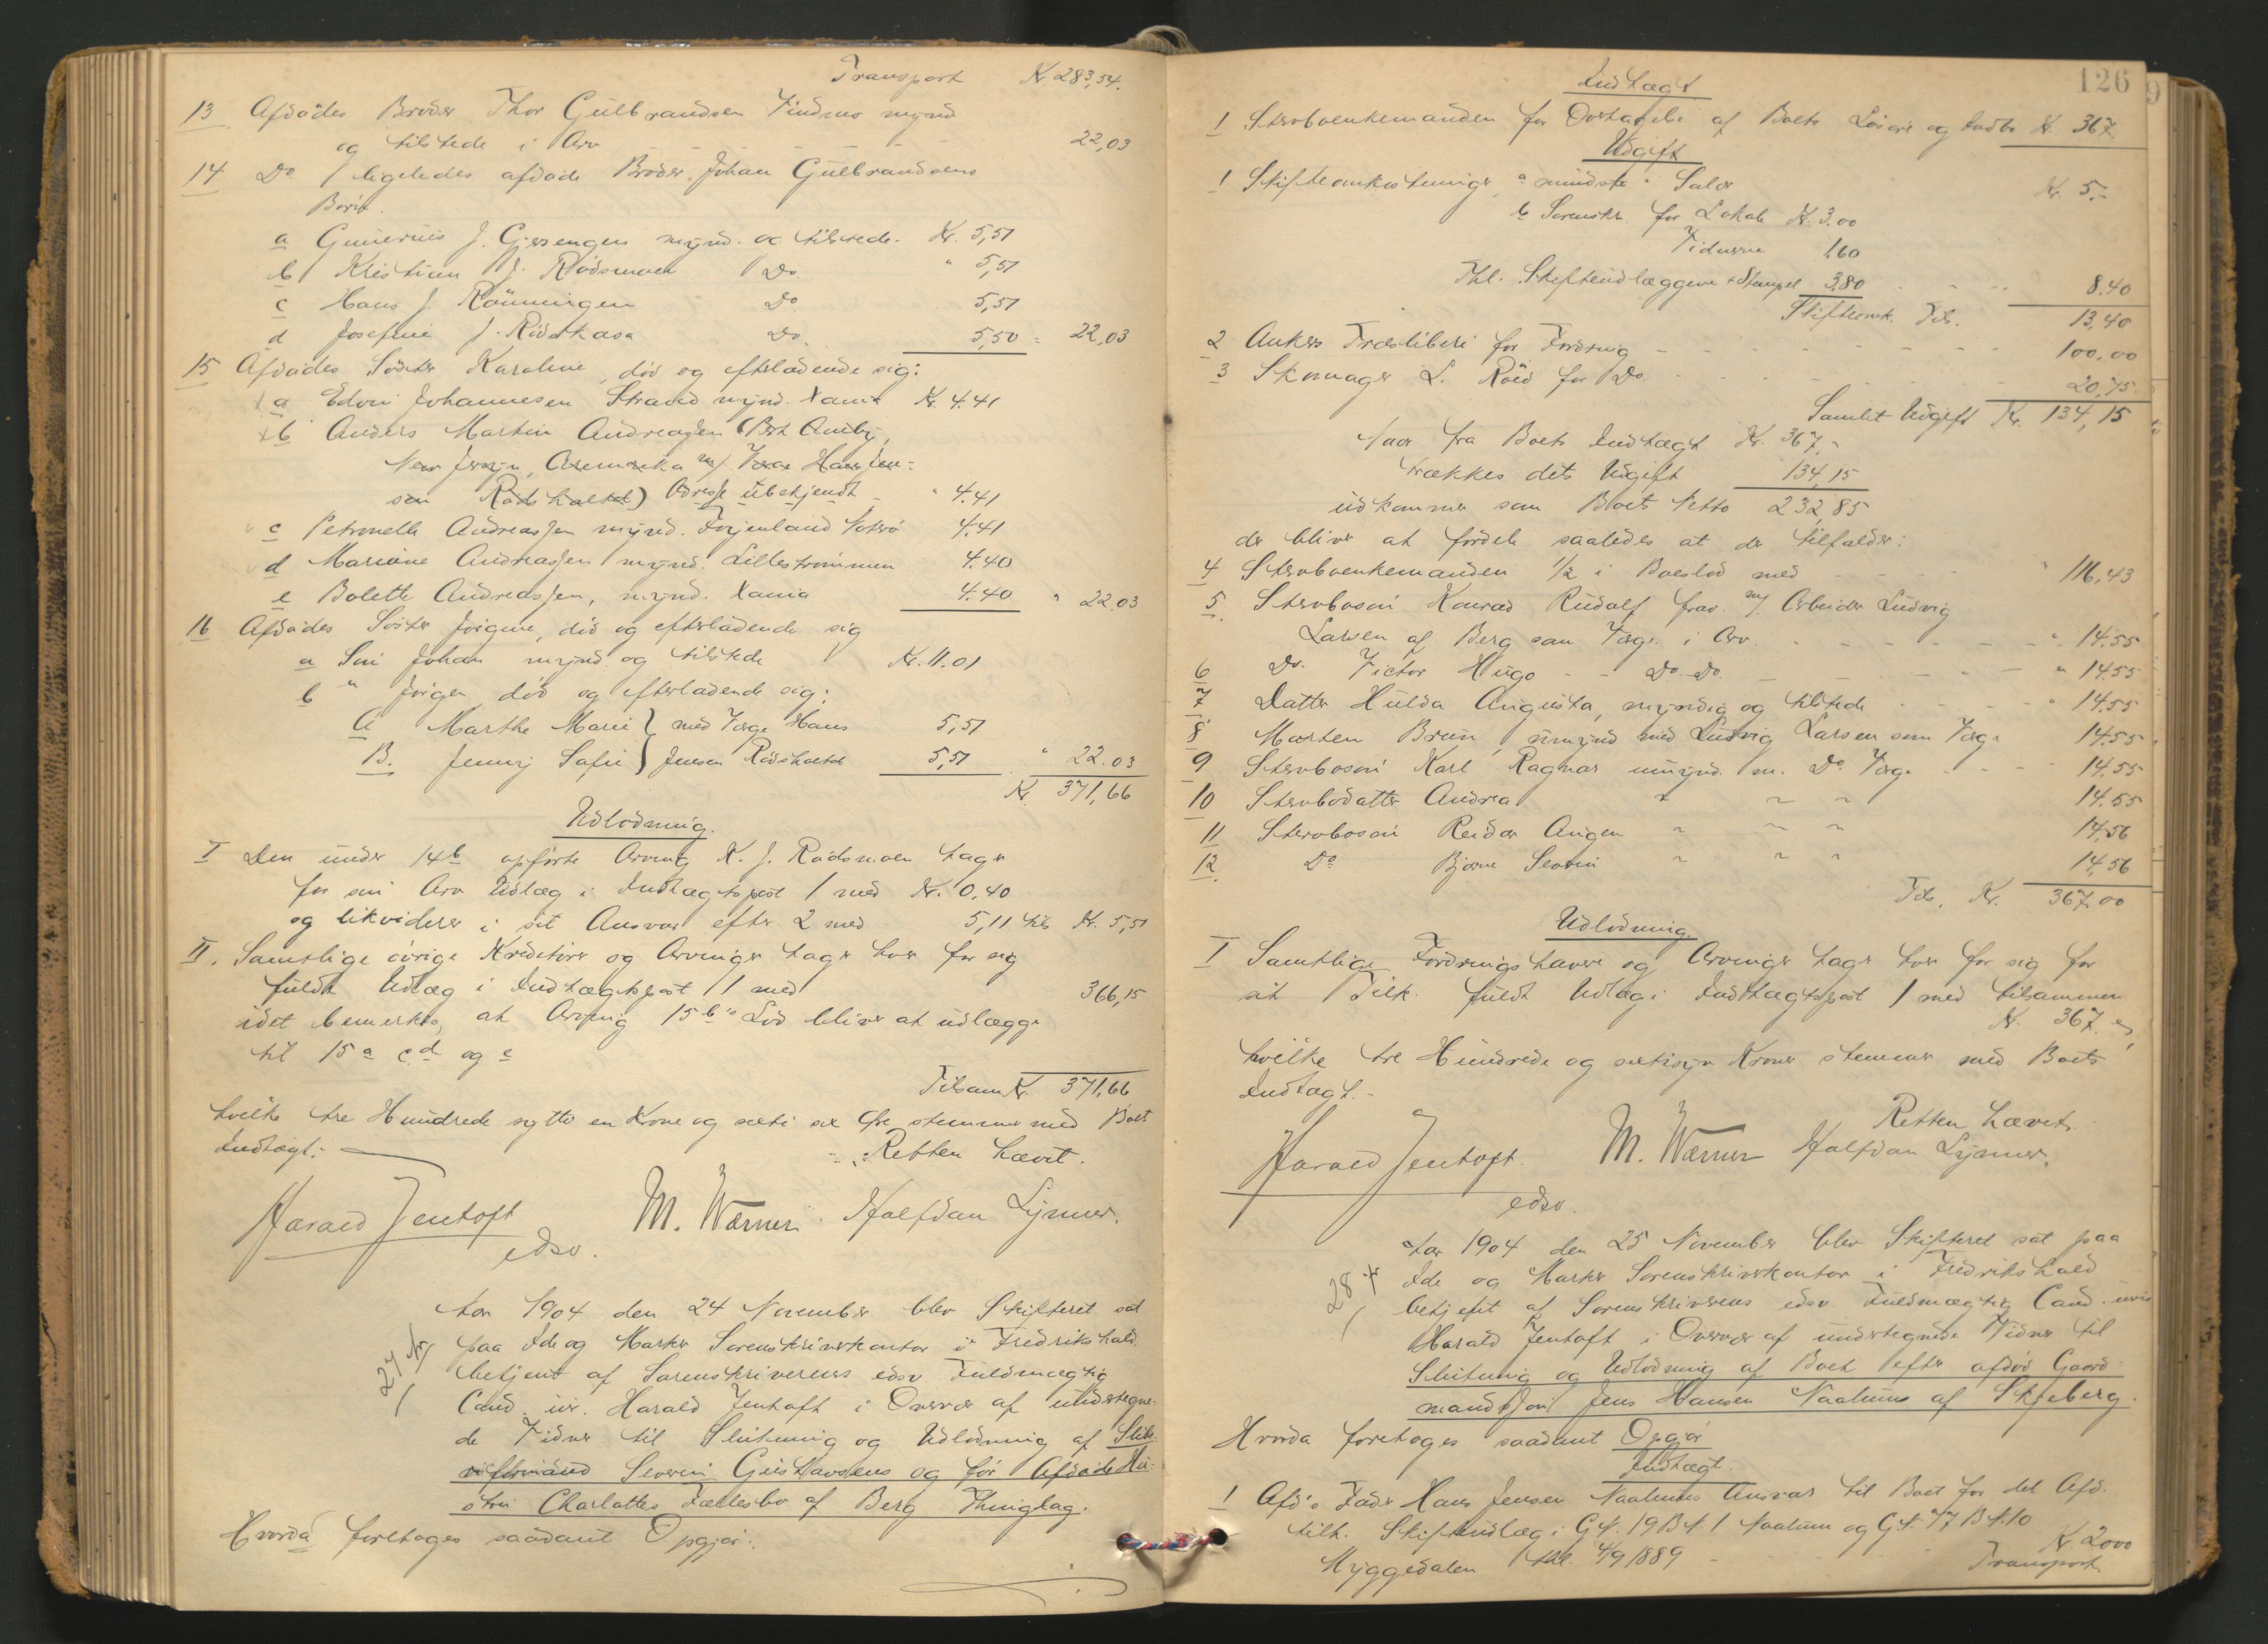 Transport Kr. 283,54.
13 Afdødes Broder Thor Gulbrandsen mynd
og tilstede i Arv 22,03
14 Do ligeledes afdøde Broder Johan Gulbrandsens
Børn.
a J. Gjerengen mynd. og tilstede. Kr. 5,51
b Kristian J. Rødsmoen Do. " 5,51
c Hans J. Rønningen Do 5,51
d Josefine J. Do. 5,50 = 22,03
15 Afdødes Søster Karoline, død og efterladende sig:
a Edvin Johannesen Strand mynd. Xania Kr. 4.41
b Anders Martin Andreassen (
New Jersey, Amerika m/ Værge Hans Jen-
sen Rødsholtet) Adresse übekjendt " 4.41
c Petronelle Andreassen mynd. Nøterø 4.41
d Mariane Andreassen mynd. Lillestrømmen 4.40
e Bolette Andreassen, mynd. Xania 4.40 " 22.03
16 Afdødes Søster Jørgine, død og efterladende sig
a Søn Johan mynd og tilstede Kr. 11.01
b " Jørgen død og efterladende sig:
A Marthe Marie } med Værge Hans 5,51
B. Jenny Sofie } Jensen Rødsholtet 5,51 " 22.03
Kr. 371,66
Udlodning.
I Den under 14b opførte Arving K. J. Rødsmoen tager
for sin Arv Udlæg i Indtægtspost 1 med Kr. 0,40
og likviderer i sit Ansvar efter 2 med 5,11 tils Kr. 5,51
II. Samtlige øvrige Kreditorer og Arvinger tager hver for sig
fuldt Udlæg i Indtægtspost 1 med 366,15
idet bemerkes, at Arving 15 b's Lod bliver at udlægge
til 15 a c d og e
Tilsam Kr. 371,66
hvilke tre Hundrede sytti en Krone og seksti sex Øre stemmer med Boets
Indtægt.
Retten hævet.
Harald Jentoft M. Wærner Halfdan Lynner.
edsv.
27/ Aar 1904 den 24 November blev Skifteret sat
paa Ide og Marker Sorenskriverkontor i Fredrikshald,
betjent af Sorenskriverens edsv. Fuldmægtig
Cand. jur. Harald Jentoft i Overvær af undertegne-
de Vidner til Slutning og Udlodning af
Severin Gustavsens og før Afdøde Hu-
stru Charlottes Fællesbo af Berg Thinglag.
Hvorda foretoges saadant Opgjør:
126
Indtægt
1 Stervboenkemanden for Overtagelse af Boets Løsøre og Indbo Kr. 367
Udgift
1 Skifteomkostninger, a mindste Salær Kr. 5.-
b Sorenskr. for Lokale Kr. 3.00
Vidnerne 1,60
Thl. Skifteudlæggene + Stempel 3,80 8,40
Skifteomk. Tils. 13,40
2 Ankers Træsliberi for Fordring 100,00
3 Skomager L. Røed for Do. 20,75
Samlet Udgift Kr. 134,15
Naar fra Boets Indtægt Kr. 367,-
trækkes dets Udgift 134,15
udkommer som Boets Netto 232,85
der bliver at fordele saaledes at der tilfalder:
4 Stervboenkemanden 1/2 i Boeslod med " 116,43
5. Stervbosøn Konrad Rudolf frav. m/ Arbeider Ludvig
Larsen af Berg som Værge i Arv " 14.55
6 Do. Victor Hugo - - Do. Do. " 14.55
7 Datter Hulda Augusta, myndig og tilstede " 14.55
8 Morten Brun, umynd med Ludvig Larsen som Værge 14.55
9 Stervbosøn Karl Ragnar umynd. m. Do. Værge 14.55
10 Stervbodatter Andrea " " " 14.55
11 Stervbosøn Reidar Angen " " " 14,56
12. Do Bjarne Severin " " " 14,56
Tils. Kr. 367.00
Udlodning.
I Samtlige Fordringshavere og Arvinger tager hver for sig for
sit Tilk. fuldt Udlæg i Indtægtspost 1 med tilsammen
Kr. 367.-,
hvilke tre Hundrede og sekstisyv Kroner stemmer med Boets
Indtægt.-
Retten hævet.
Harald Jentoft. M. Wærner Halfdan Lynner.
edsv.
28/ Aar 1904 den 25 November blev Skifteret sat paa
Ide og Marker Sorenskriverkontor i Fredrikshald
betjent af Sorenskriverens edsv. Fuldmægtig Cand. juris
Harald Jentoft i Overvær af undertegnede Vidner til
Slutning og Udlodning af Boet efter afdød Gaard-
mandssøn Jens Hansen Naalum af Skjeberg.
Hvorda foretoges saadant Opgjør
Indtægt.
1 Afd's Fader Hans Jensen Naalums Ansvar til Boet for det Afd.
tilk. Skifteudlæg i G.N. 19 B.N. 1 Naalum og G.N. 77 B.N. 10
Myggedalen thl. 4/9 1889 Kr. 2000
Transport